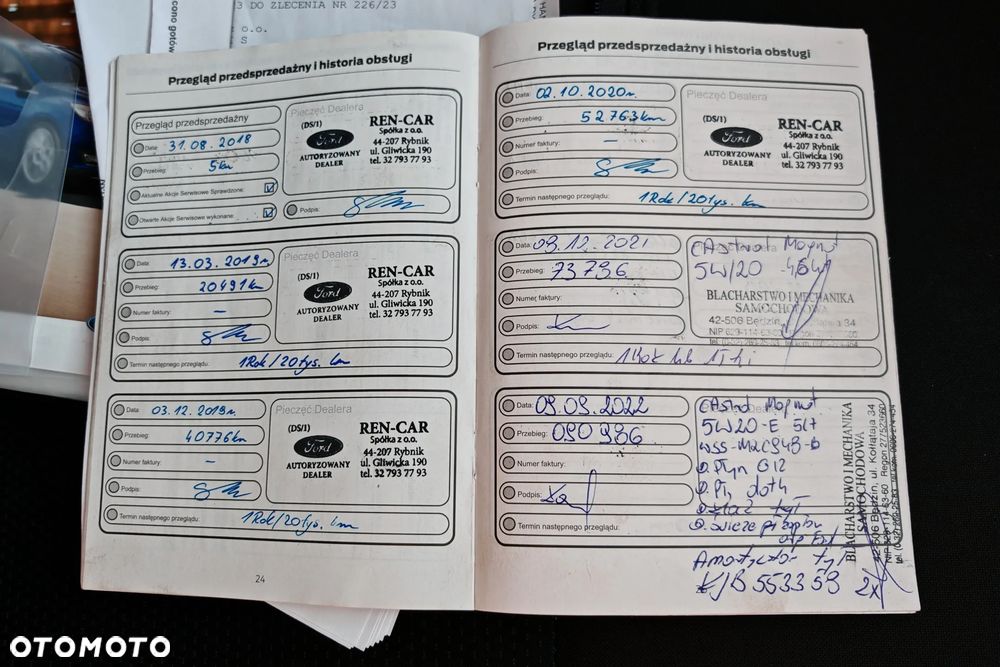 3 DO ZLECENIA NR 226/23
o.o.
S
Przegląd przedsprzedażny i historia obsługi
Przegląd przedsprzedażny
Data: 31.08.2018
Przebieg: 5km
Aktualne Akcje Serwisowe Sprawdzone:
Otwarte Akcje Serwisowe wykonane:
Pieczęć Dealera
(DS/1)
Ford
AUTORYZOWANY
DEALER
REN-CAR
Spółka z o.o.
44-207 Rybnik
ul. Gliwicka 190
tel. 32 793 77 93
Podpis:
Data: 13.03.2019r.
Przebieg: 20491km
Numer faktury: –
Podpis:
Pieczęć Dealera
(DS/1)
Ford
AUTORYZOWANY
DEALER
REN-CAR
Spółka z o.o.
44-207 Rybnik
ul. Gliwicka 190
tel. 32 793 77 93
Termin następnego przeglądu: 1Rok/20tys. km
Data: 03.12.2019r.
Przebieg: 40776km
Numer faktury: –
Podpis:
Pieczęć Dealera
(DS/1)
Ford
AUTORYZOWANY
DEALER
REN-CAR
Spółka z o.o.
44-207 Rybnik
ul. Gliwicka 190
tel. 32 793 77 93
Termin następnego przeglądu: 1Rok/20tys. km
24
Przegląd przedsprzedażny i historia obsługi
Data: 02.10.2020r.
Przebieg: 52763km
Numer faktury: –
Podpis:
Pieczęć Dealera
(DS/1)
Ford
AUTORYZOWANY
DEALER
REN-CAR
Spółka z o.o.
44-207 Rybnik
ul. Gliwicka 190
tel. 32 793 77 93
Termin następnego przeglądu: 1Rok/20tys. km
Data: 09.12.2021
Przebieg: 73796
Numer faktury:
Podpis:
Pieczęć Dealera
5W/20
BLACHARSTWO I MECHANIKA
SAMOCHODOWA
42-506 Będzin, ul. Kołłątaja 34
Termin następnego przeglądu: 1 Rok lub
Data: 09.09.2022
Przebieg: 090986
Numer faktury:
Podpis:
Termin następnego przeglądu:
5W20-E
G12
BLACHARSTWO I MECHANIKA
SAMOCHODOWA
42-506 Będzin, ul. Kołłątaja 34
KJB 553359 2x
OTOMOTO